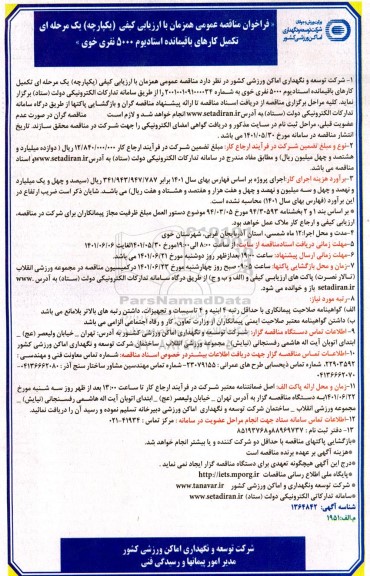 «فراخوان مناقصه عمومی همزمان با ارزیابی کیفی (یکپارچه) یک مرحله ای
تکمیل کارهای باقیمانده استادیوم ۵۰۰۰ نفری خوی»
شرکت توسعه و نگهداری
اماکن ورزشی کشور
۱- شرکت توسعه و نگهداری اماکن ورزشی کشور در نظر دارد مناقصه عمومی همزمان با ارزیابی کیفی (یکپارچه) یک مرحله ای تکمیل
کارهای باقیمانده استادیوم ۵۰۰۰ نفری خوی به شماره را از طریق سامانه تدارکات الکترونیکی دولت (ستاد) برگزار
نماید. کلیه مراحل برگزاری مناقصه از دریافت اسناد مناقصه تا ارائه پیشنهاد مناقصه گران و بازگشایی پاکتها از طریق درگاه سامانه
تدارکات الکترونیکی دولت (ستاد) به آدرس www.setadiran.ir انجام خواهد شد و لازم است مناقصه گران در صورت عدم
عضویت قبلی، مراحل ثبت نام در سایت مذکور و دریافت گواهی امضای الکترونیکی را جهت شرکت در مناقصه محقق سازند. تاریخ
انتشار مناقصه در سامانه مورخ ۱۴۰۱/۰۵/۳۰ می باشد.
۲-نوع و مبلغ تضمین شرکت در فرآیند ارجاع کار: مبلغ تضمین شرکت در فرآیند ارجاع کار ۱۲/۸۴۰/۰۰۰/۰۰۰ ریال (دوازده میلیارد و
هشتصد و چهل میلیون ریال) و مطابق مفاد مندرج در سامانه تدارکات الکترونیکی دولت (ستاد) به آدرس www.setadiran.ir و اسناد
مناقصه می باشد
۳-برآورد هزینه اجرای کار: اجرای پروژه بر اساس فهارس بهای سال ۱۴۰۱ برابر ۳۴۱/۹۴۳/۹۴۷/۷۸۷ ریال (سیصد و چهل و یک میلیارد
و نهصد و چهل و سه میلیون و نهصد و چهل و هفت هزار و هفتصد و هشتاد و هفت ریال) می باشد. شایان ذکر است ضریب ارتفاع در
این برآورد (فهارس بهای سال ۱۴۰۱) محاسبه نشده است.
* بر اساس بند ۱ و ۲ بخشنامه ۹۴/۳۰۵۹۳ مورخ ۹۴/۰۳/۰۵ موضوع دستور العمل مبلغ ظرفیت مجاز پیمانکاران برای شرکت در مناقصه،
ارزیابی کیفی و ارجاع کار ملاک عمل خواهد بود.
۴-مدت و محل اجرا: ۱۲ ماه شمسی، استان آذربایجان غربی، شهرستان خوی
۵-مهلت زمانی دریافت اسناد مناقصه از سایت: از ساعت ۸:۰۰ الی ۱۹:۰۰ مورخ ۱۴۰۱/۰۵/۳۰ لغایت ۱۴۰۱/۰۶/۰۶
۶-مهلت زمانی ارسال پیشنهاد: ساعت ۱۹:۰۰ بعدازظهر روز دوشنبه مورخ ۱۴۰۱/۰۶/۲۱ می باشد.
۷-زمان و محل بازگشایی پاکتها: ساعت ۰۹:۰۰ صبح روز چهارشنبه مورخ ۱۴۰۱/۰۶/۲۳ در کمیسیون مناقصه در مجموعه ورزشی انقلاب
(تالار نصرت) پاکت های ارزیابی کیفی و الف و ب و ج) از طریق درگاه سامانه تدارکات الکترونیکی دولت (ستاد) به آدرس www.
setadiran.ir باز و خوانده می شود.
۸-رتبه مورد نیاز:
الف: گواهینامه صلاحیت پیمانکاری با حداقل رتبه ۴ ابنیه و ۴ تاسیسات و تجهیزات، داشتن رتبه های بالاتر بلامانع می باشد
ب) داشتن گواهینامه معتبر صلاحیت ایمنی پیمانکاران از وزارت تعاون، کار و رفاه اجتماعی الزامی می باشد
۹-اطلاعات تماس دستگاه مناقصه گزار: شرکت توسعه و نگهداری اماکن ورزشی کشور به آدرس تهران_ خیابان ولیعصر (عج)_
ابتدای اتوبان آیت اله هاشمی رفسنجانی (نیایش)_ مجموعه ورزشی انقلاب_ ساختمان شرکت توسعه و نگهداری اماکن ورزشی کشور
۱۰-اطلاعات تماس مناقصه گزار جهت دریافت اطلاعات بیشتر در خصوص اسناد مناقصه: شماره تماس معاونت فنی و مهندسی:
شماره تماس ذیحسابی طرح های عمرانی: ۲۳۰۷۹۱۵۵- شماره تماس مهندسین مشاور ساختار سنج آذر:
۱۱-زمان و محل ارائه پاکت الف: اصل ضمانتنامه معتبر شرکت در فرآیند ارجاع کار تا ساعت ۱۳:۰۰ بعد از ظهر روز سه شنبه مورخ
۱۴۰۱/۰۶/۲۲ به دستگاه مناقصه گزار به آدرس تهران _ خیابان ولیعصر (عج) _ ابتدای اتوبان آیت اله هاشمی رفسنجانی (نیایش)_
مجموعه ورزشی انقلاب _ ساختمان شرکت توسعه و نگهداری اماکن ورزشی دبیرخانه تسلیم نموده و رسید آن را دریافت نمائید.
۱۲-اطلاعات تماس سامانه ستاد جهت انجام مراحل عضویت در سامانه: مرکز تماس: ۴۱۹۳۴-۰۲۱
۱۳- دفتر ثبت نام: ۸۸۹۶۹۷۳۷ و ۸۵۱۹۳۷۶۸
*بازگشایی پاکتهای مناقصه با حداقل دو شرکت کننده و یا بیشتر انجام خواهد شد.
*هزینه آگهی بر عهده برنده مناقصه است
*درج این آگهی هیچگونه تعهدی برای دستگاه مناقصه گزار ایجاد نمی نماید.
*پایگاه ملی اطلاع رسانی مناقصات http://iets.mporg.ir
* شرکت توسعه ونگهداری و اماکن ورزشی کشور www.tanavar.ir
*سامانه تدارکاتی الکترونیکی دولت (ستاد) www.setadiran.ir
شناسه آگهی: ۱۳۶۴۸۴۲
م.الف: ۱۹۵۱
شرکت توسعه و نگهداری اماکن ورزشی کشور
مدیر امور پیمانها و رسیدگی فنی